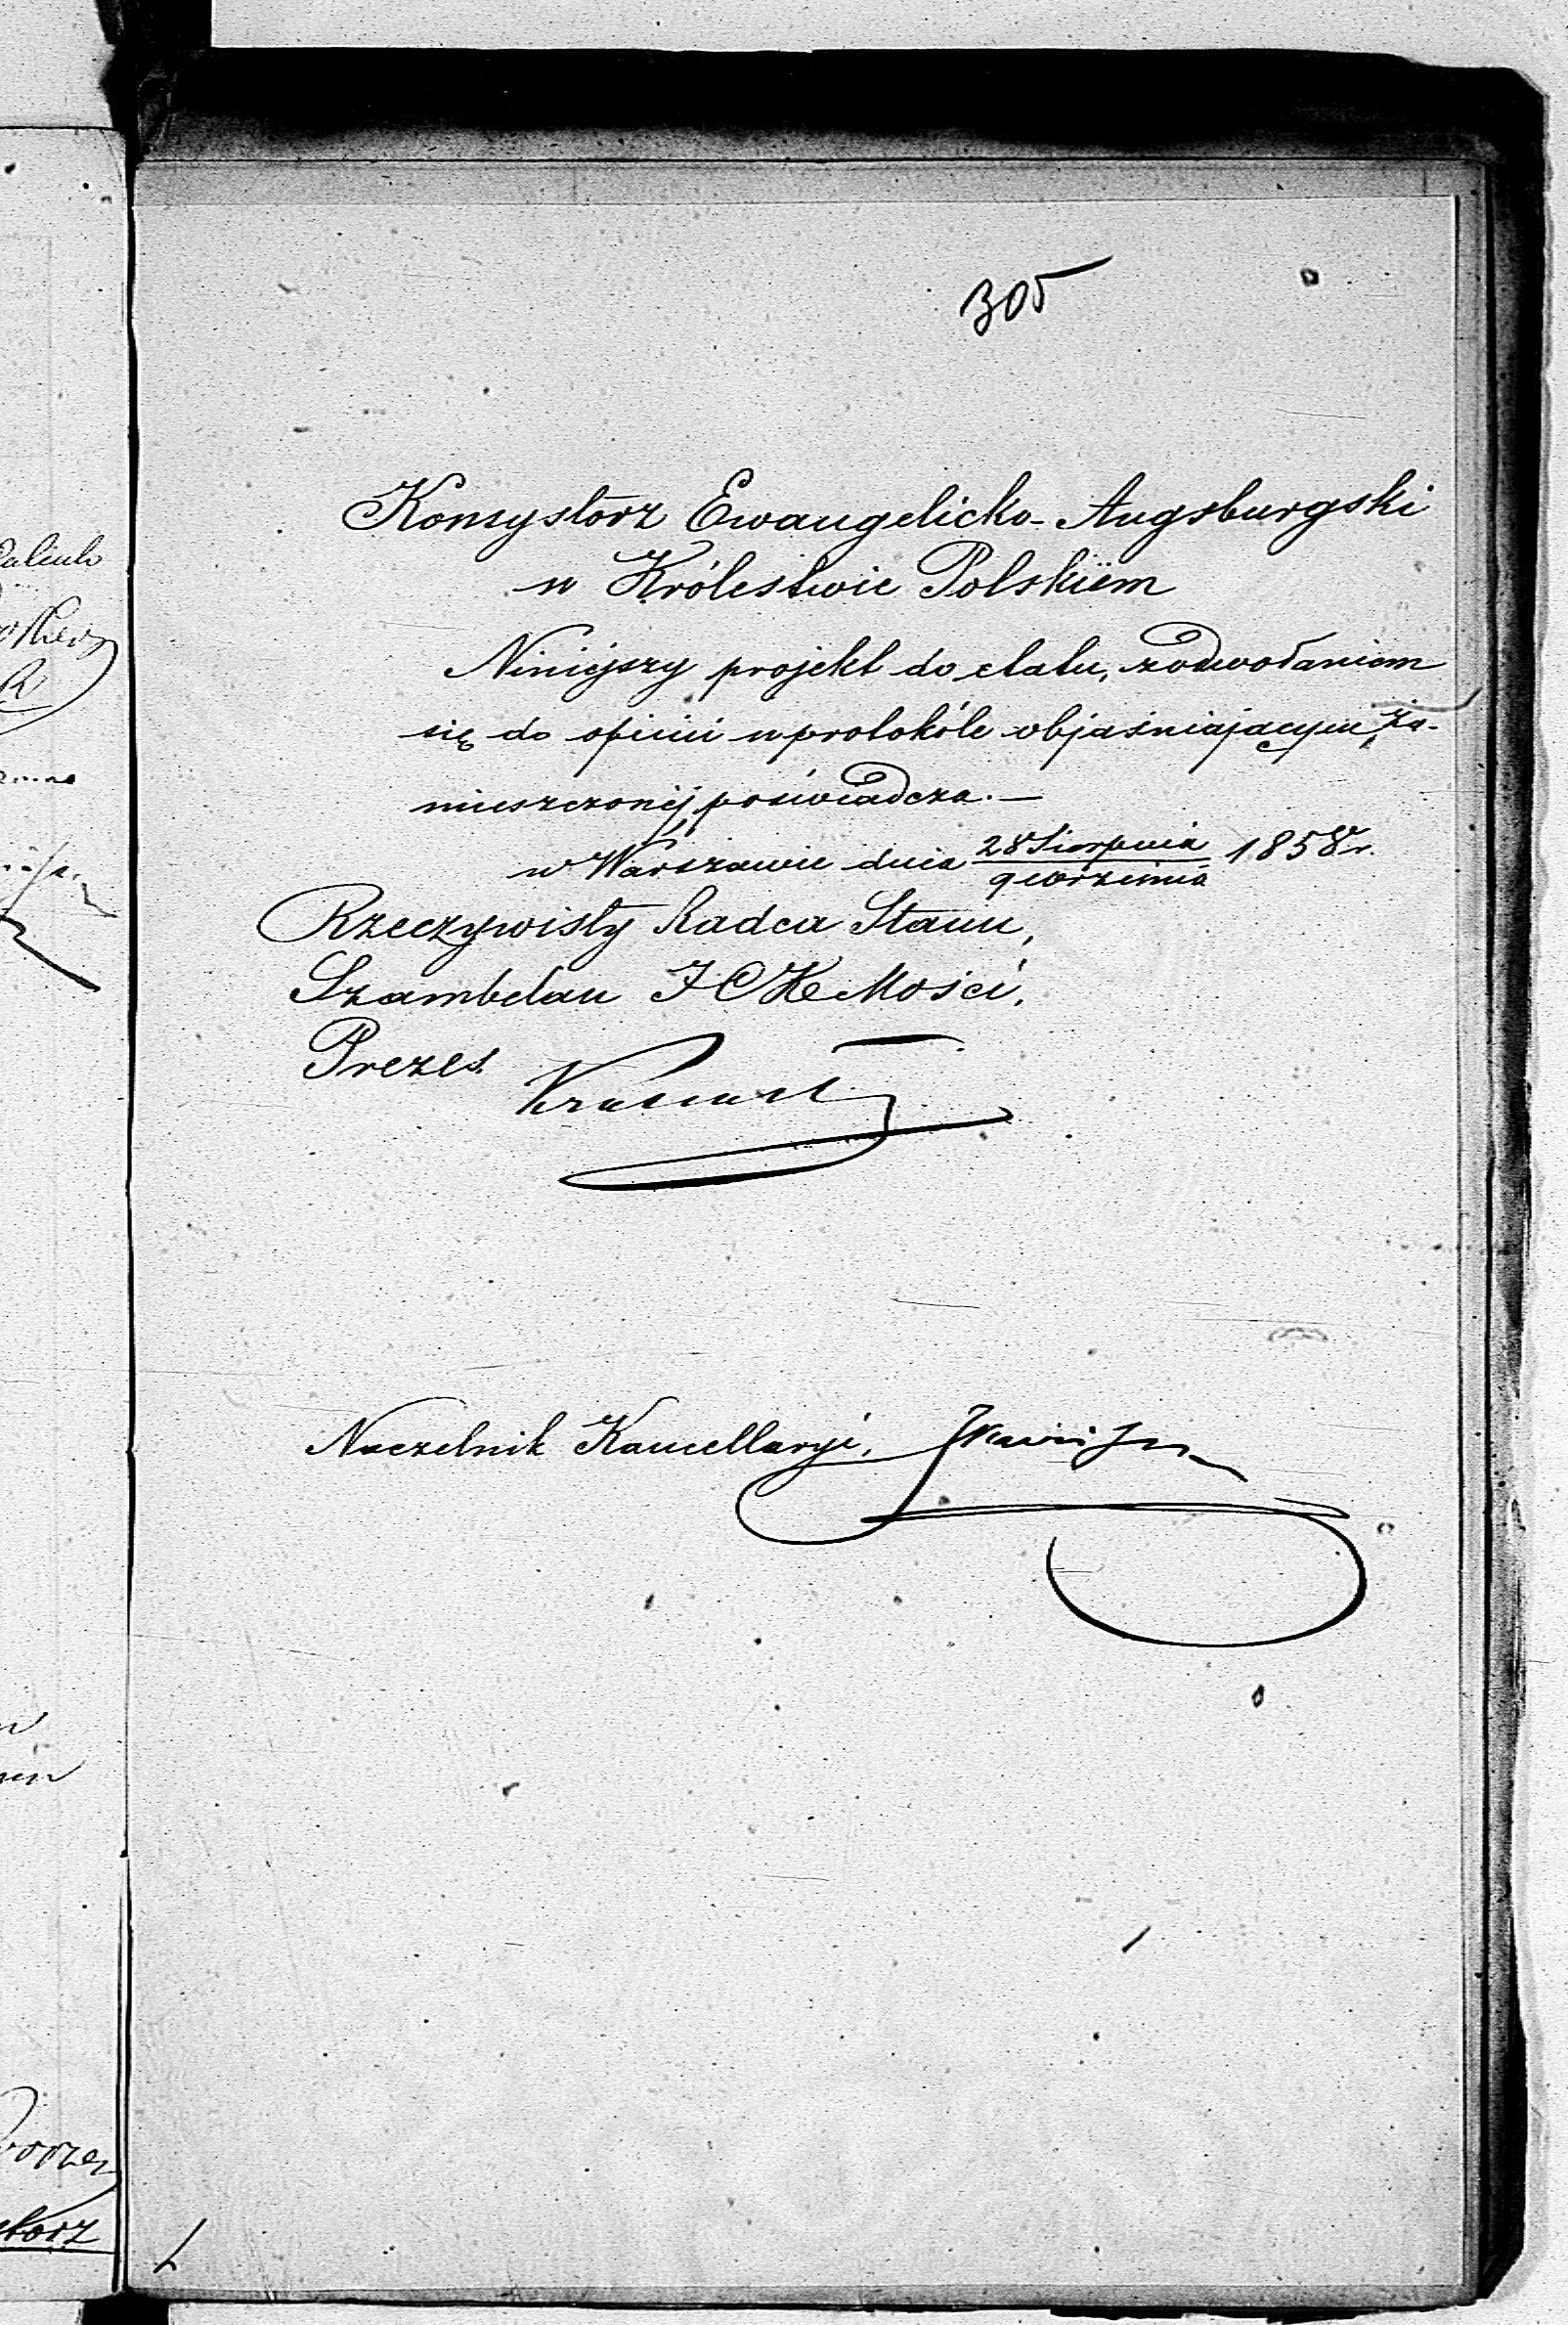 305
Konsystorz Ewangelicko-Augsburgski
w Królestwie Polskiém
Niniéjszy projekt do etatu, z odwołaniem
się do opinii w protokóle objaśniającym, za-
mieszczonéj poświadcza. —
w Warszawie dnia 28 Sierpnia / 9 Września 1858 r.
Rzeczywisty Radca Stanu,
Szambelan J C K Mości,
Prezes
Naczelnik Kancellaryi,